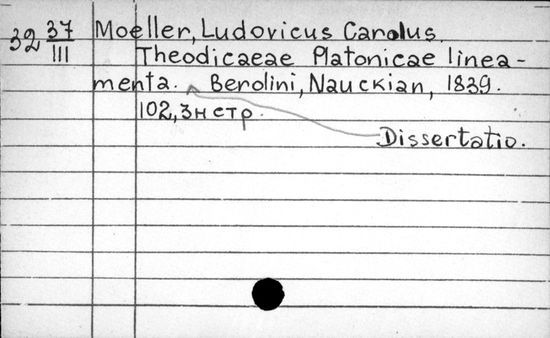 32 37/III Moeller, Ludovicus Carolus.
Theodicaeae Platonicae linea-
menta. Berolini, Nauckian, 1839.
102, 3н стр.
Dissertatio.